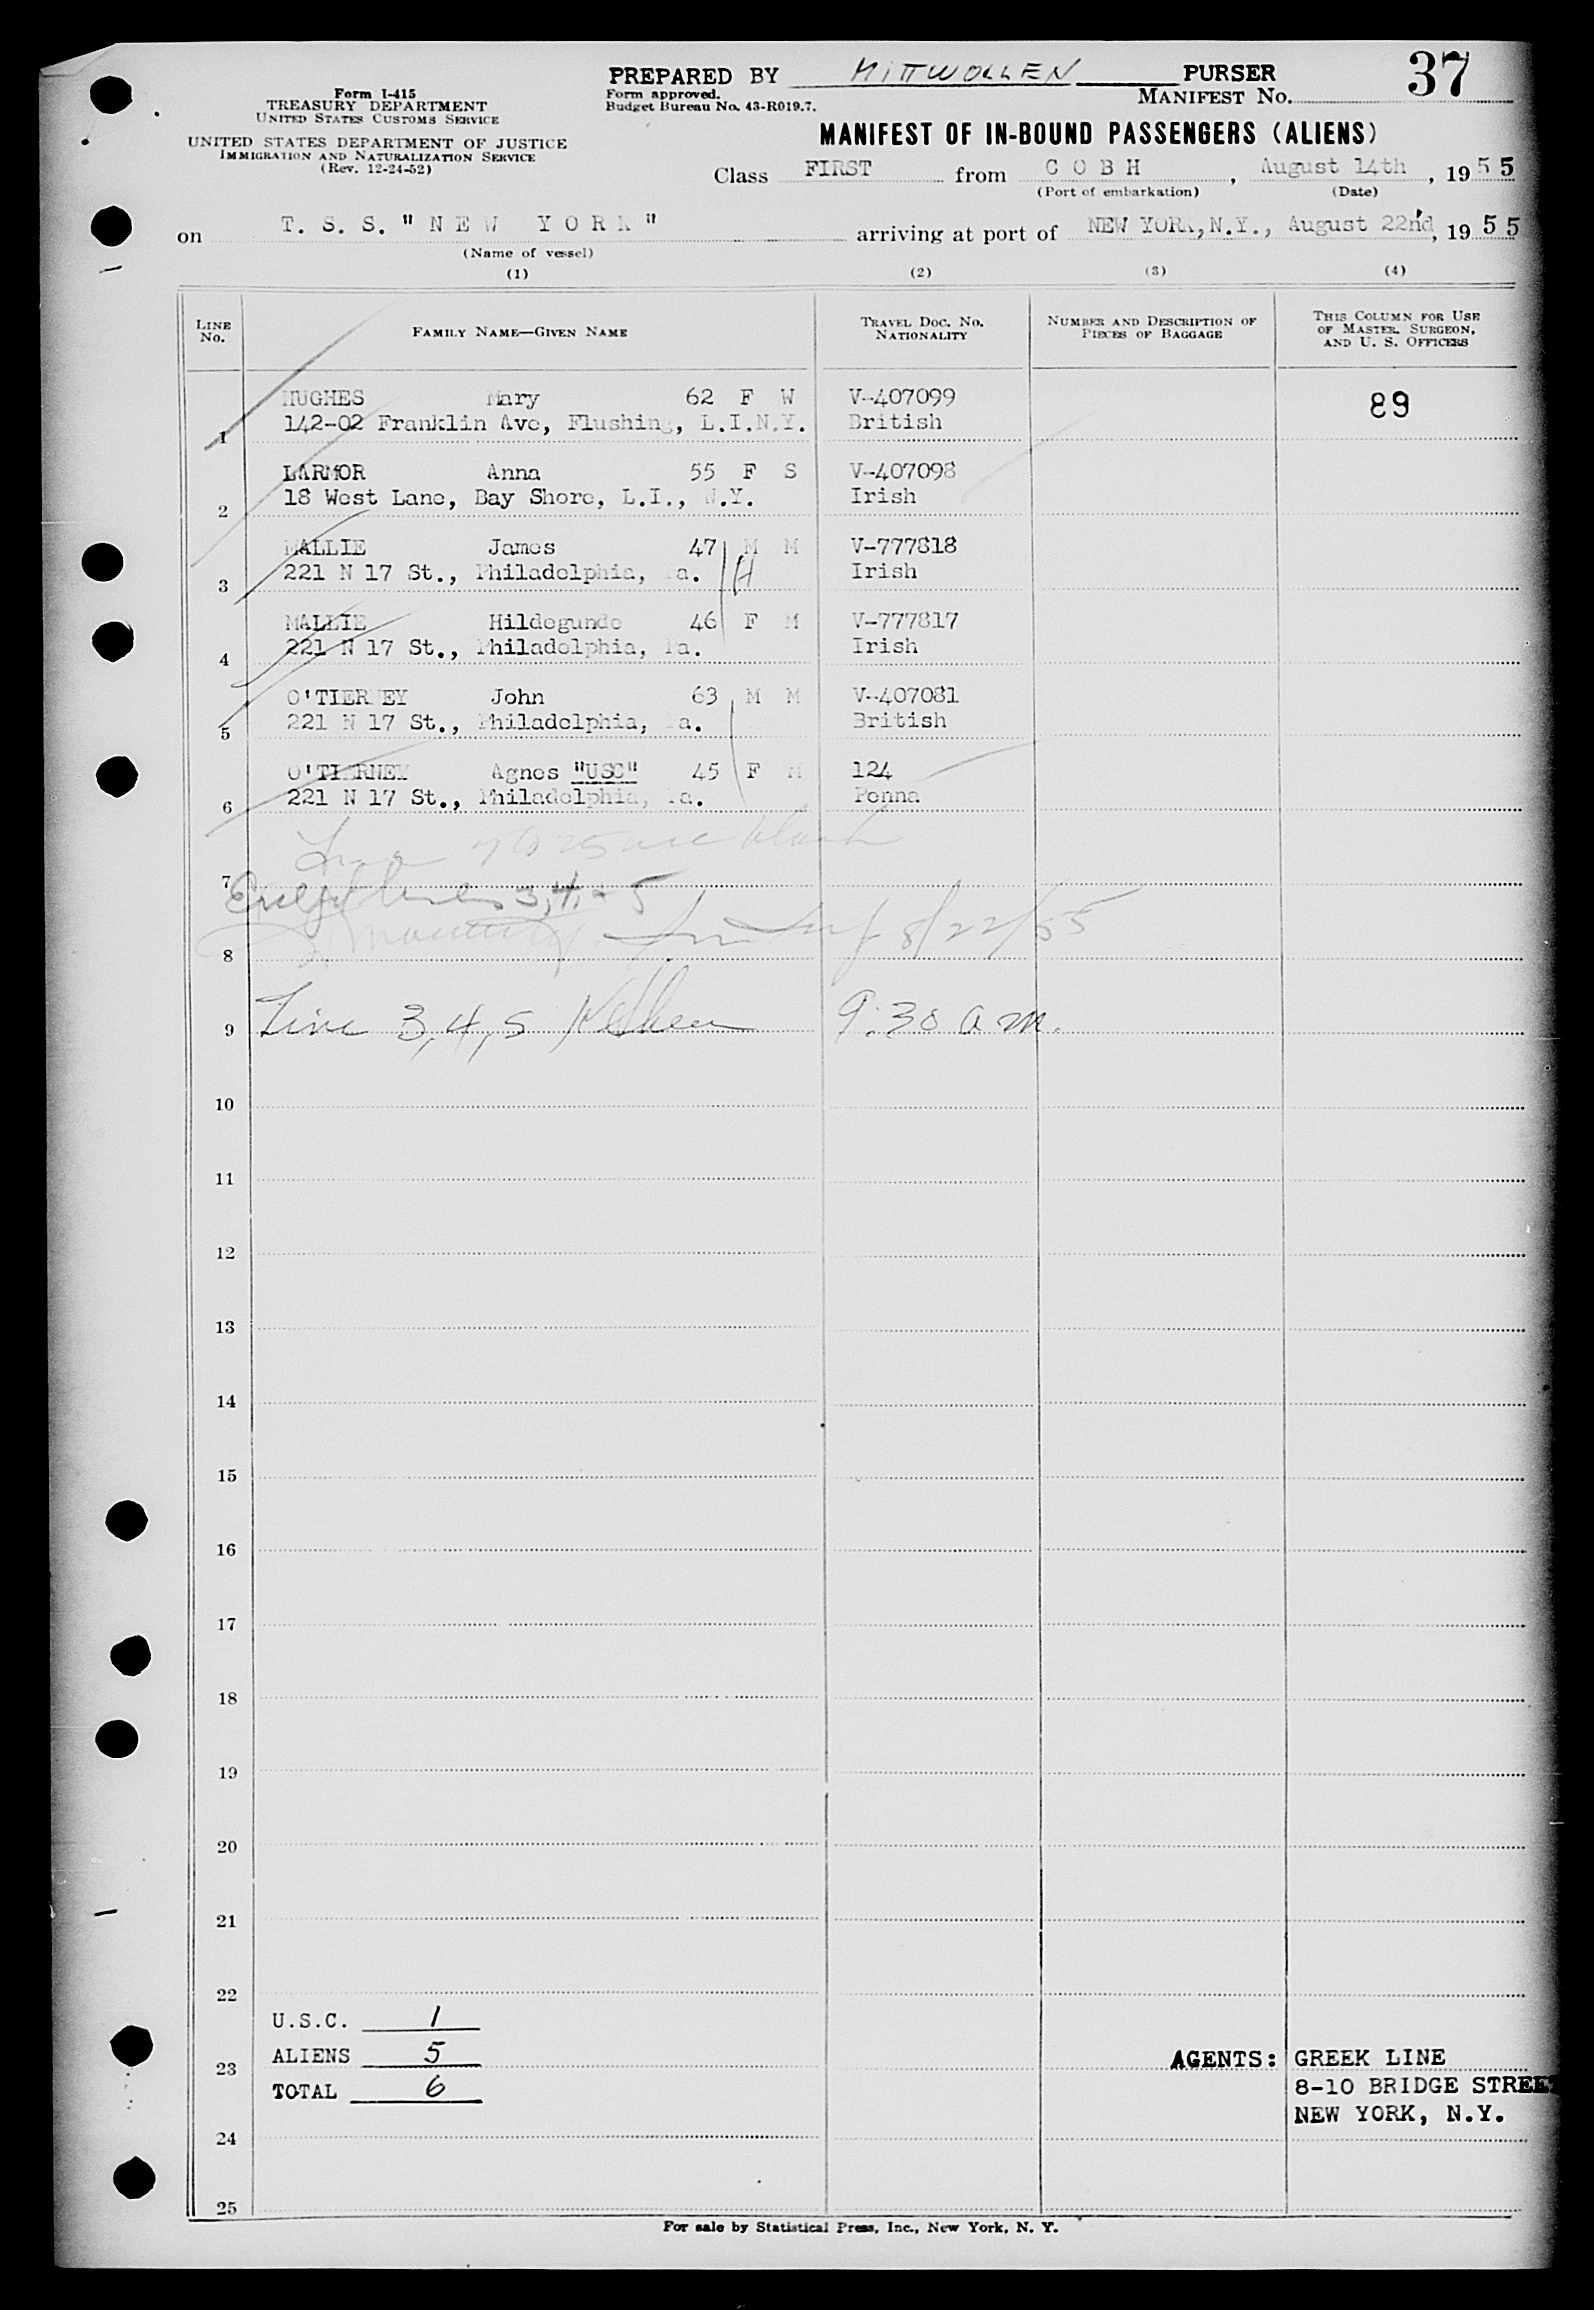 PREPARED BY MITTWOLLEN PURSER
37
Form I-415
TREASURY DEPARTMENT
UNITED STATES CUSTOMS SERVICE
Form approved.
Budget Bureau No. 43-R019.7.
MANIFEST NO.
UNITED STATES DEPARTMENT OF JUSTICE
IMMIGRATION AND NATURALIZATION SERVICE
(Rev. 12-24-52)
MANIFEST OF IN-BOUND PASSENGERS (ALIENS)
Class FIRST from COBH, August 14th, 1955
(Port of embarkation) (Date)
on T. S. S. "NEW YORK" arriving at port of NEW YORK, N.Y., August 22nd, 1955
(Name of vessel)
(1) (2) (3) (4)
LINE No. FAMILY NAME—GIVEN NAME TRAVEL DOC. NO. NATIONALITY NUMBER AND DESCRIPTION OF PIECES OF BAGGAGE THIS COLUMN FOR USE OF MASTER, SURGEON, AND U. S. OFFICERS
HUGHES Mary 62 F W V-407099 89
1 142-02 Franklin Ave, Flushing, L.I.N.Y. British
LARMOR Anna 55 F S V-407098
2 18 West Lane, Bay Shore, L.I., N.Y. Irish
MALLIE James 47 M M V-777818
3 221 N 17 St., Philadelphia, Pa. Irish
MALLIE Hildegunde 46 F M V-777817
4 221 N 17 St., Philadelphia, Pa. Irish
O'TIERNEY John 63 M M V-407081
5 221 N 17 St., Philadelphia, Pa. British
O'TIERNEY Agnes "USC" 45 F M 124
6 221 N 17 St., Philadelphia, Pa. Penna
7 Except lines 3, 4, + 5
8 8/22/55
9 Line 3, 4, 5 9:30 am.
10
11
12
13
14
15
16
17
18
19
20
21
22
U.S.C. 1
ALIENS 5
23
AGENTS: GREEK LINE
TOTAL 6
8-10 BRIDGE STREET
NEW YORK, N.Y.
24
25
For sale by Statistical Press, Inc., New York, N. Y.